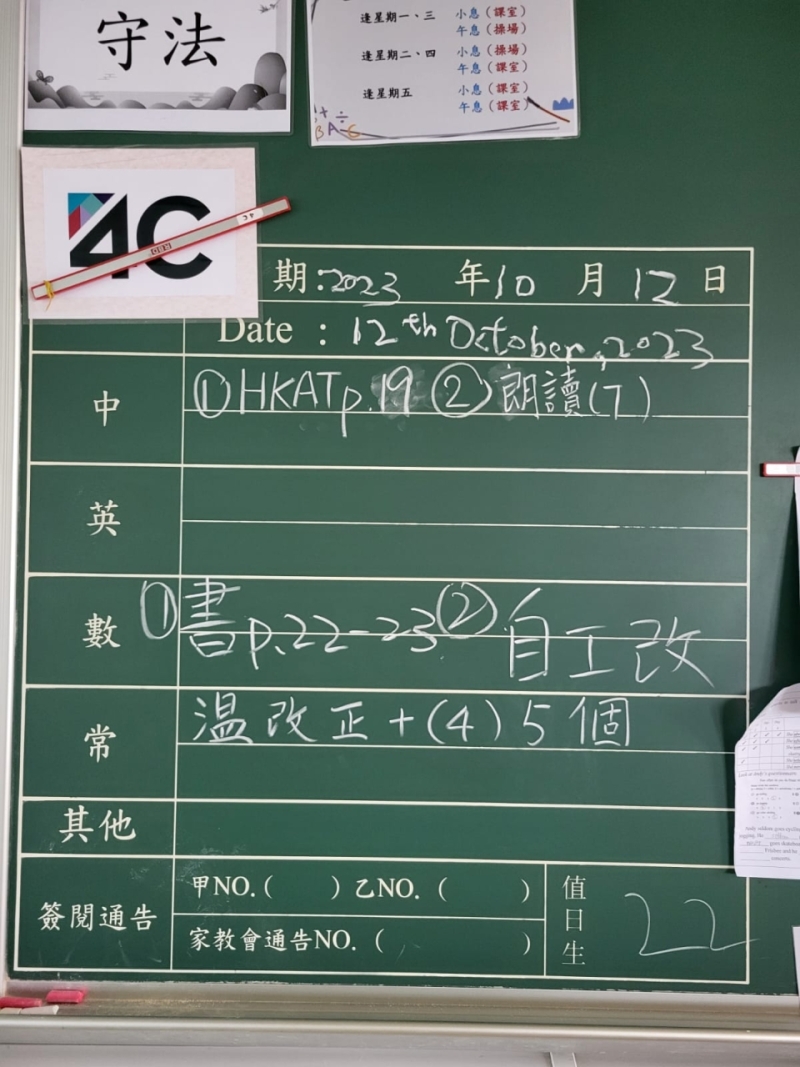 守法
逢星期一、三 小息（課室）
午息（操場）
逢星期二、四 小息（操場）
午息（課室）
逢星期五 小息（課室）
午息（課室）
4C
期:2023 年10 月 12 日
Date : 12th October, 2023
中 ①HKAT p.19 ②朗讀(7)
英
數 ①書p.22-23 ②自工改
常 溫改正+(4)5個
其他
簽閱通告 甲NO.( ) 乙NO. ( )
家教會通告NO. ( )
值日生 22